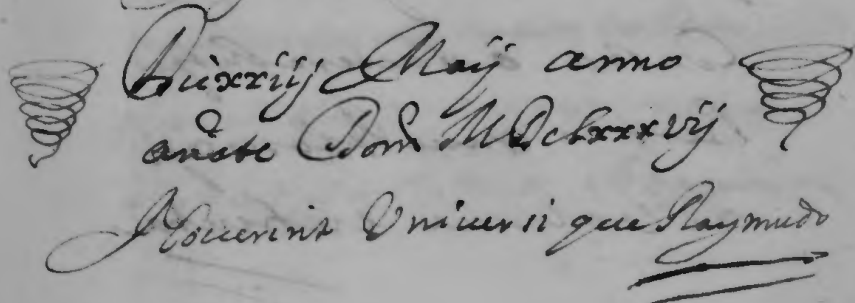 Die xxiiij Maij anno
anãte Dom̃ MDclxxxvij
Nouerint Vniuersi que Raymudo